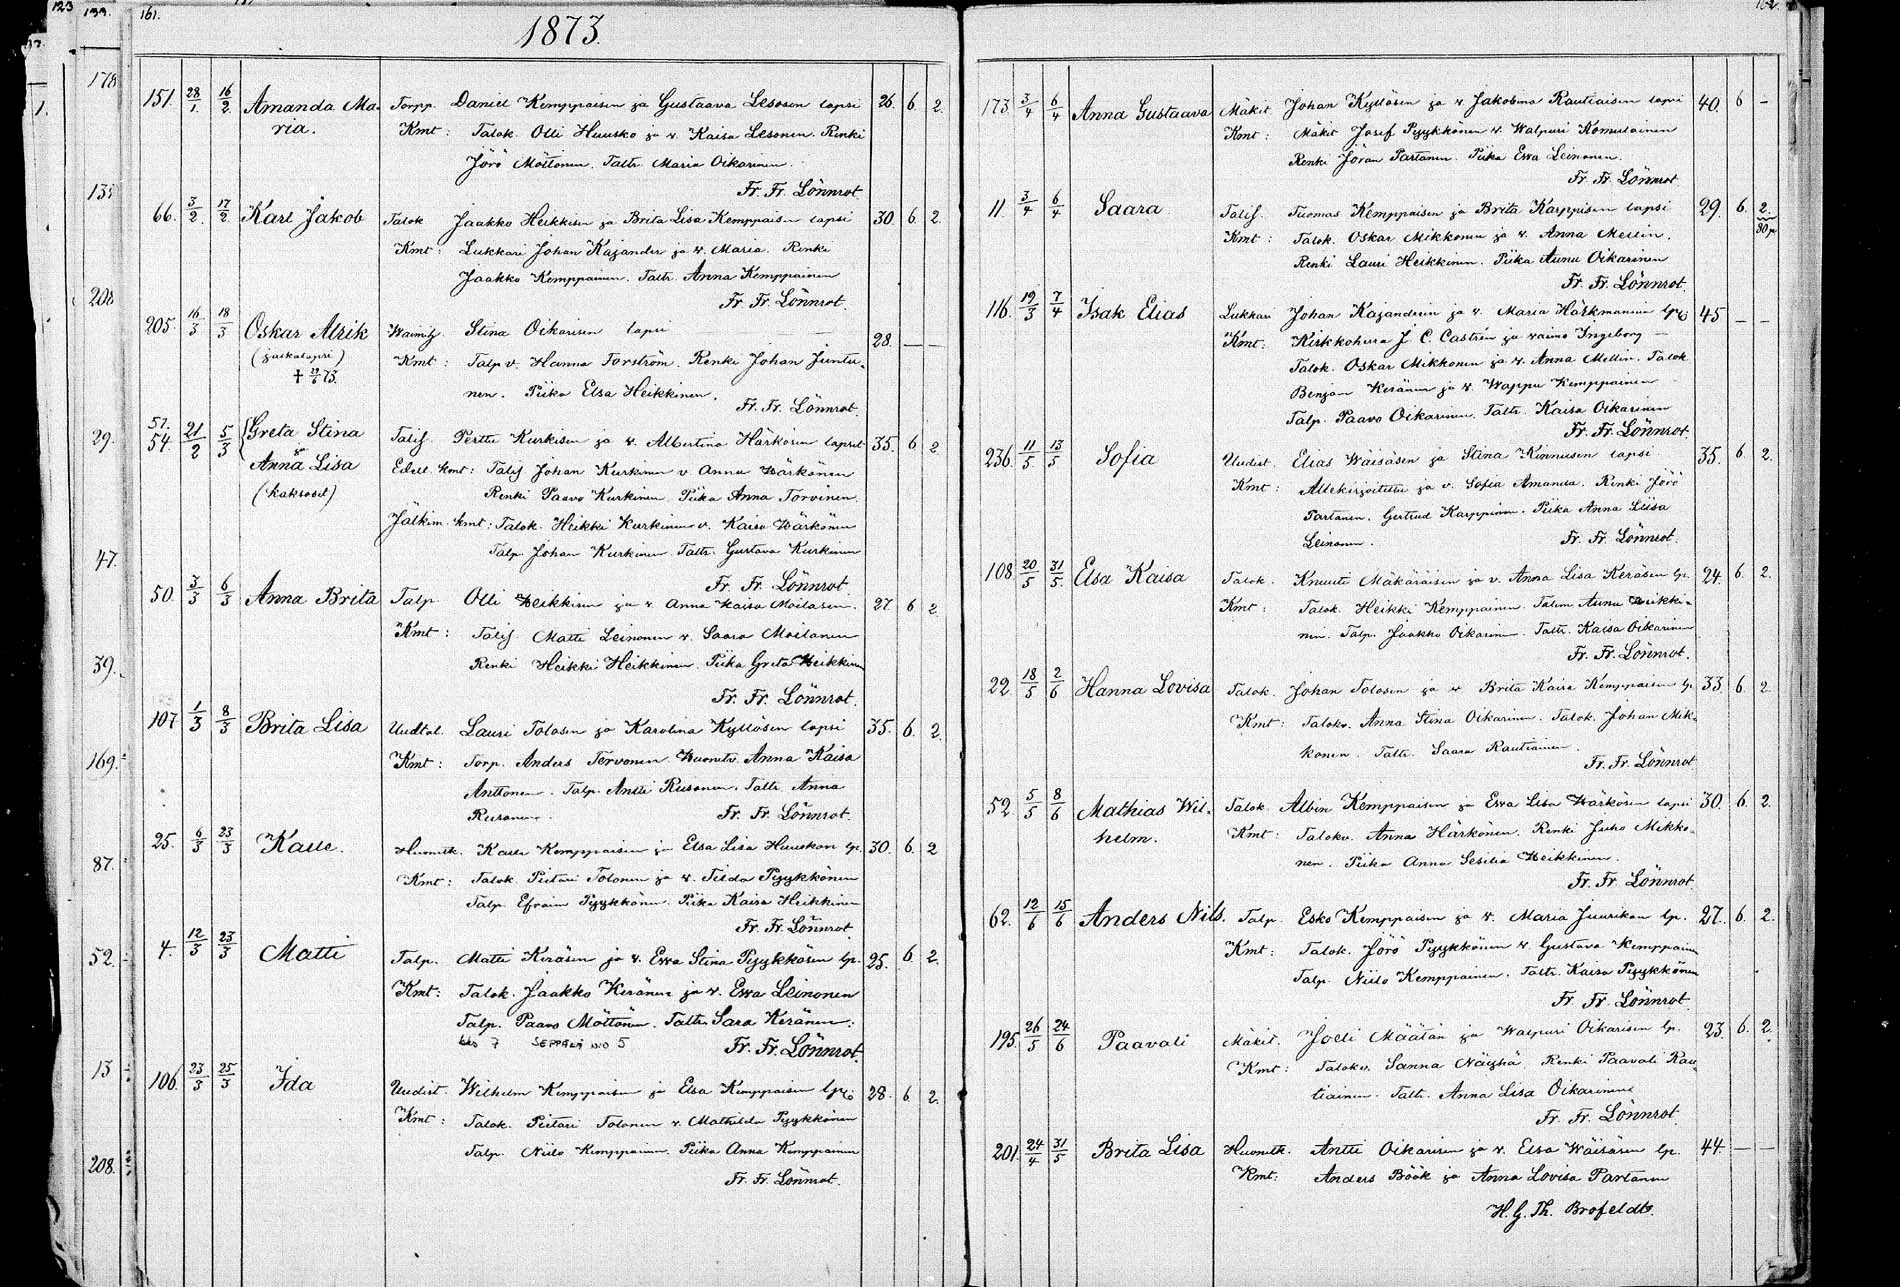 123 133. 161.
1873.
151. 28/1. 16/2. Amanda Ma- Torpp. Daniel Kemppaisen ja Gustaava Lesosen lapsi 26. 6. 2.
ria. Kmt: Talok. Olli Huusko ja v. Kaisa Lesonen. Renki
Jörö Möttönen. Taltr. Maria Oikarinen.
Fr. Fr. Lönnrot.
66. 3/2. 17/2. Karl Jakob Talok Jaakko Heikkisen ja Brita Lisa Kemppaisen lapsi 30. 6. 2.
Kmt: Lukkari Johan Kajander ja v. Maria. Renki
Jaakko Kemppainen. Taltr. Anna Kemppainen
Fr. Fr. Lönnrot.
205. 16/3 18/3 Oskar Alrik Stina Oikarisen lapsi 28. — —
† 29/6 73. Kmt: Talp v. Hanna Torström. Renki Johan Juntu-
nen. Piika Elsa Heikkinen.
Fr. Fr. Lönnrot.
51. 54. 21/2 5/3 Greta Stina Talij. Perttu Kurkisen ja v. Albertina Härkösen lapset 35. 6. 2.
Anna Lisa Edell. kmt: Talij Johan Kurkinen v Anna Härkönen
(kaksoset) Renki Paavo Kurkinen. Piika Anna Torvinen.
Jälkim. kmt: Talok. Heikki Kurkinen v. Kaisa Härkönen
Talp Johan Kurkinen. Taltr. Gustava Kurkinen
Fr. Fr. Lönnrot
50. 3/3 6/3 Anna Brita Talp Olli Heikkisen ja v. Anna Kaisa Moilasen. 27. 6 2
Kmt: Talij. Matti Leinonen v. Saara Moilanen
Renki Heikki Heikkinen. Piika Greta Heikkinen
Fr. Fr. Lönnrot.
107 1/3 8/3 Brita Lisa Uudtal. Lauri Tolosen ja Karolina Kyllösen lapsi 35. 6. 2.
Kmt: Torp. Anders Tervonen. Huonetv. Anna Kaisa
Anttonen. Talp. Antti Rusanen. Taltr. Anna
Rusanen. Fr. Fr. Lönnrot.
25. 6/3 23/3 Kalle. Huonetk. Kalle Kemppaisen ja Elsa Lisa Huuskon lp. 30. 6. 2
Kmt: Talok. Pietari Tolonen ja v. Tilda Pyykkönen
Talp Efraim Pyykkönen. Piika Kaisa Heikkinen
Fr. Fr. Lönnrot
4. 12/3 23/3 Matti Talp. Matti Keräsen ja v. Ewa Stina Pyykkösen lp. 25. 6. 2.
Kmt: Talok. Jaakko Keränen ja v. Ewa Leinonen
Talp. Paavo Möttönen. Taltr. Sara Keränen.
Fr. Fr. Lönnrot.
106. 23/3 25/3 Ida Uudist. Wilhelm Kemppaisen ja Elsa Kemppaisen lps. 28. 6. 2.
Kmt: Talok. Pietari Tolonen v. Mathilda Pyykkönen
Talp. Niilo Kemppainen. Piika Anna Kemppainen
Fr. Fr. Lönnrot.
178
208
29.
47.
39.
169.
87.
52.
13
208.
162.
173. 3/4 6/4 Anna Gustaava Mäkit Johan Kyllösen ja v Jakobina Rautiaisen lapsi 40. 6 —
Kmt: Mäkit Josef Pyykkönen v. Walpuri Komulainen
Renki Jöran Partanen. Piika Ewa Leinonen.
Fr. Fr. Lönnrot
11. 3/4 6/4 Saara Talij. Tuomas Kemppaisen ja Brita Karppisen lapsi 29. 6. 2. 80p
Kmt: Talok. Oskar Mikkonen ja v. Anna Mellin.
Renki Lauri Heikkinen. Piika Aunu Oikarinen
Fr. Fr. Lönnrot.
116. 19/3 7/4 Isak Elias Lukkari Johan Kajanderin ja v. Maria Härkmannin lps 45 — —
Kmt: Kirkkoherra J. C. Castrén ja vaimo Ingeborg
Talok. Oskar Mikkonen ja v. Anna Mellin. Talok.
Benjam Keränen ja v. Wappu Kemppainen
Talp. Paavo Oikarinen. Taltr. Kaisa Oikarinen
Fr. Fr. Lönnrot.
236. 11/5 13/5 Sofia Uudist. Elias Wäisäsen ja Stina Kinnusen lapsi 35. 6. 2.
Kmt: Allekirjoitettu ja v. Sofia Amanda. Renki Jörö
Partanen. Gertrud Karppinen. Piika Anna Liisa
Leinonen. Fr. Fr. Lönnrot.
108 20/5 31/5 Elsa Kaisa Talok. Knuuti Mäkäräisen ja v. Anna Lisa Keräsen lp. 24. 6. 2.
Kmt: Talok. Heikki Kemppainen. Aunu Heikki-
nen. Talp. Jaakko Oikarinen. Taltr. Kaisa Oikarinen
Fr. Fr. Lönnrot.
22. 18/5 2/6 Hanna Lovisa Talok. Johan Tolosen ja v Brita Kaisa Kemppaisen lp 33. 6. 2
Kmt: Talokv. Anna Stina Oikarinen. Talok. Johan Mik-
konen. Taltr. Saara Rautiainen.
Fr. Fr. Lönnrot
52. 5/5 8/6 Mathias Wil- Talok. Albin Kemppaisen ja Ewa Lisa Härkösen lapsi 30. 6. 2.
helm. Kmt: Talokv. Anna Härkönen. Renki Juho Mikko-
nen. Piika Anna Sesilia Heikkinen.
Fr. Fr. Lönnrot
62. 12/6 15/6 Anders Nils. Talp. Esko Kemppaisen ja v. Maria Juurikan lp. 27. 6. 2.
Kmt: Talok. Jörö Pyykkönen v Gustava Kemppainen
Talp. Niilo Kemppainen. Taltr. Kaisa Pyykkönen
Fr. Fr. Lönnrot
195. 26/5 24/6 Paavali Mäkit. Joeli Määtän ja Walpuri Oikarisen lp. 23. 6. 2.
Kmt: Talokv. Sanna Näyhä Renki Paavali Rau-
tiainen. Taltr. Anna Lisa Oikarinen
Fr. Fr. Lönnrot.
201. 24/4 31/5 Brita Lisa Huonetk. Antti Oikarisen ja v. Elsa Wäisäsen lp. 44. — —
Kmt: Anders Böök ja Anna Lovisa Partanen
H. G. Th. Brofeldt.